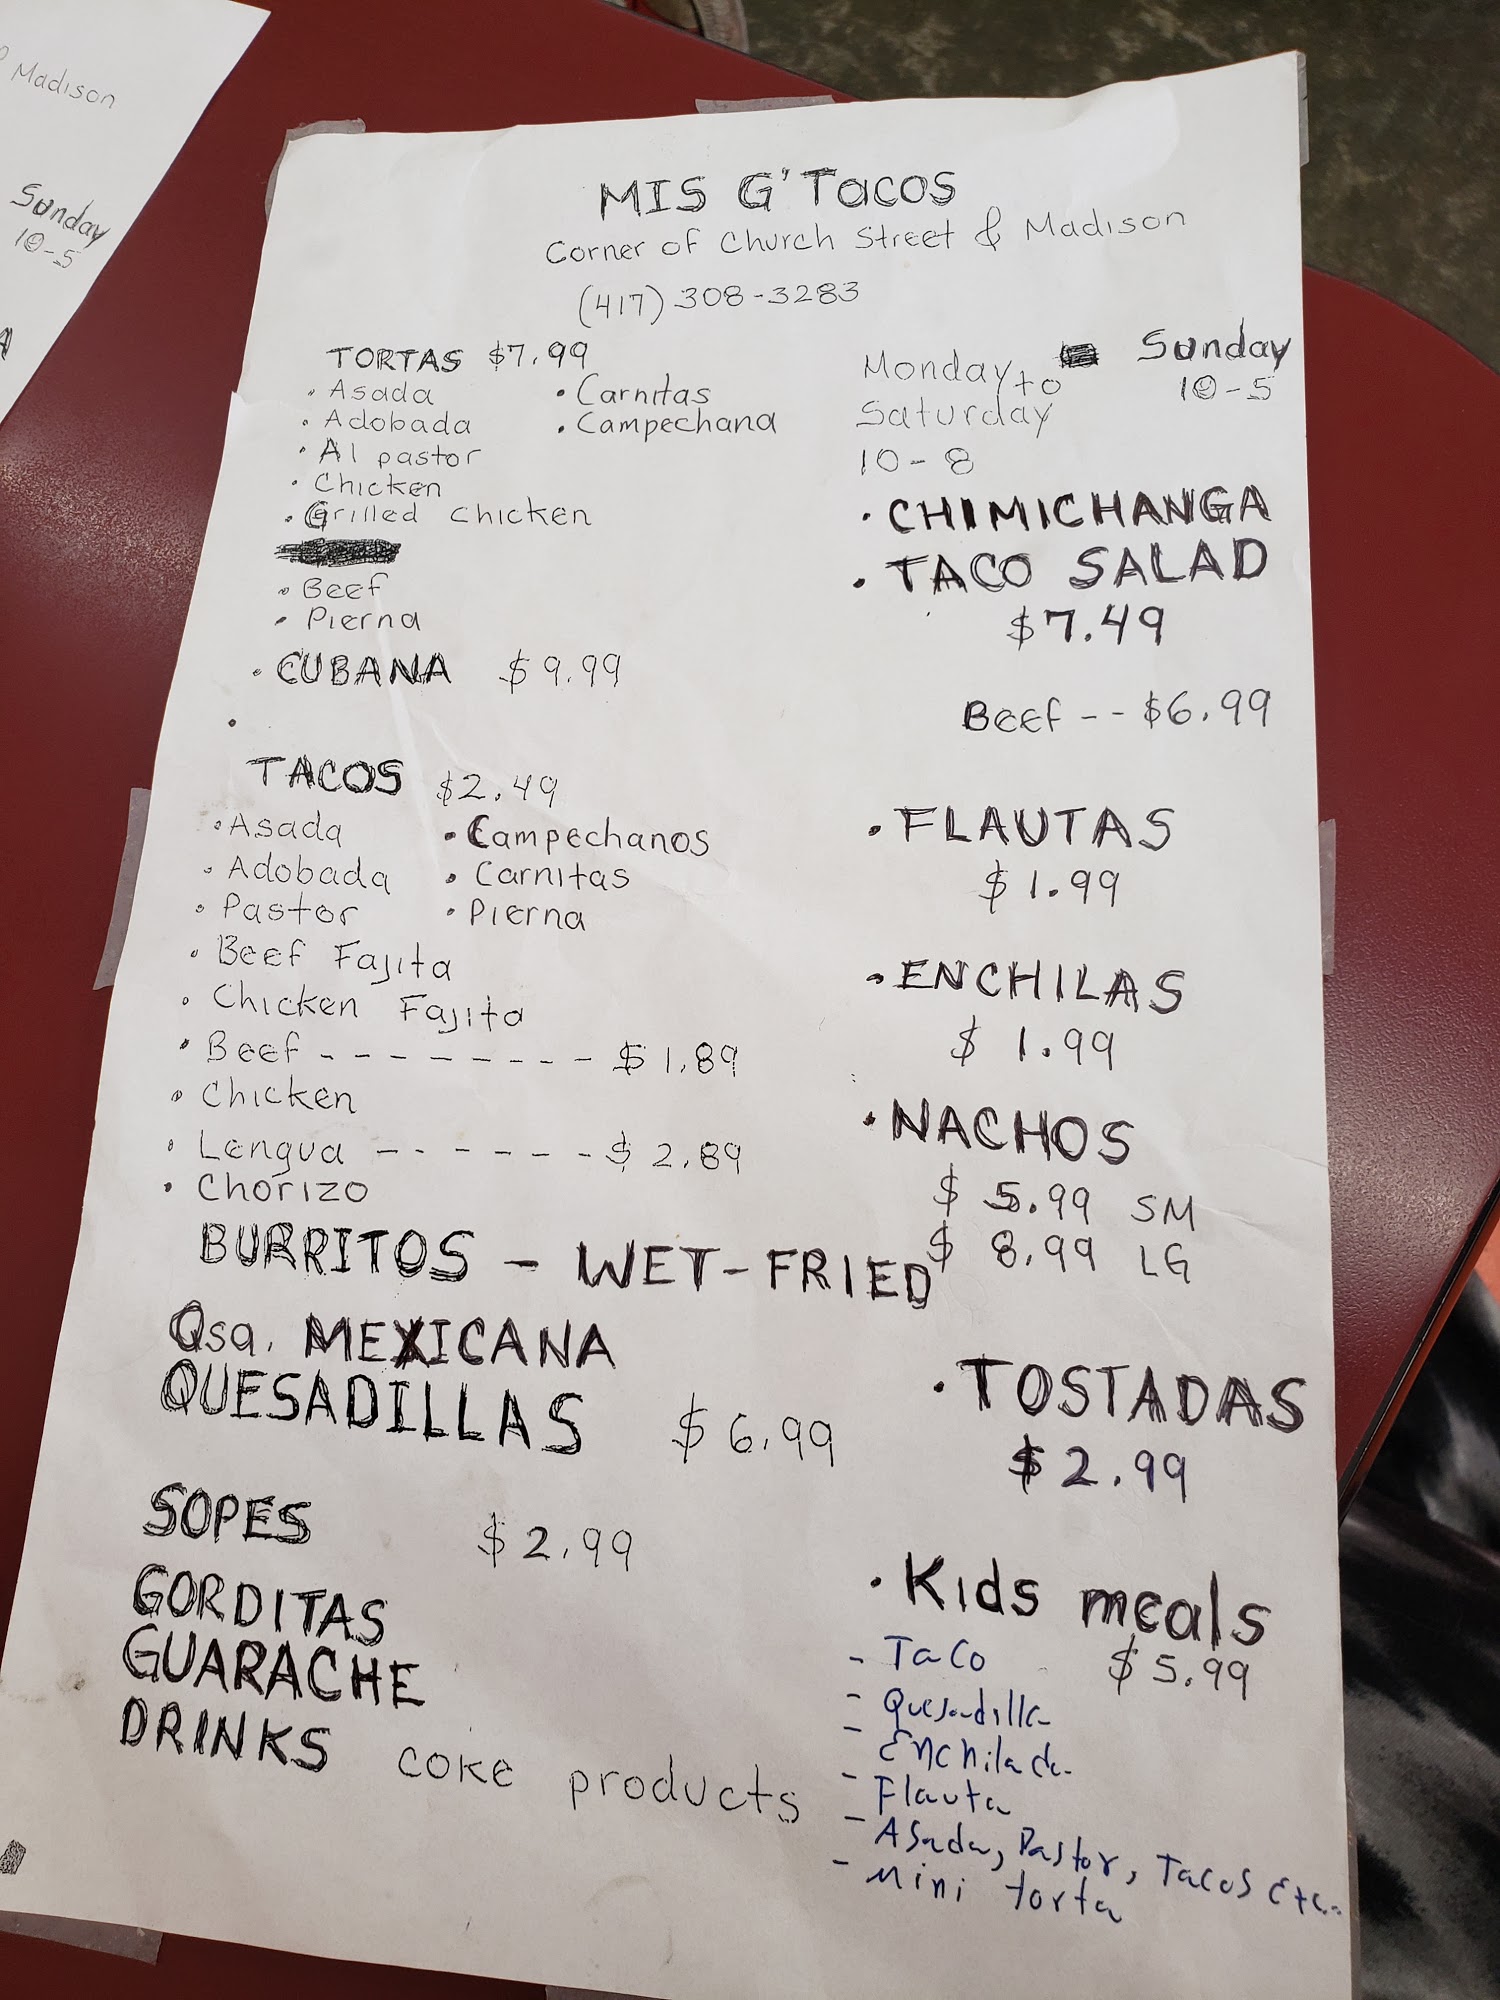 Madison
Sunday
10-5
MIS G'TACOS
Corner of Church Street & Madison
(417) 308-3283
TORTAS $7.99
• Asada
• Adobada
• Al pastor
• Chicken
• Grilled chicken
• Beef
• Pierna
• Carnitas
• Campechana
• CUBANA $9.99
•
TACOS $2.49
• Asada
• Adobada
• Pastor
• Beef Fajita
• Chicken Fajita
• Beef -------- $1.89
• Chicken
• Lengua ------ $2.89
• Chorizo
• Campechanos
• Carnitas
• Pierna
BURRITOS - WET-FRIED
Qsa. MEXICANA
QUESADILLAS $6.99
SOPES $2.99
GORDITAS
GUARACHE
DRINKS coke products
Monday to
Saturday
10-8
Sunday
10-5
• CHIMICHANGA
• TACO SALAD
$7.49
Beef -- $6.99
• FLAUTAS
$1.99
• ENCHILAS
$1.99
• NACHOS
$5.99 SM
$8.99 LG
• TOSTADAS
$2.99
• Kids meals
$5.99
- Taco
- Quesadilla
- Enchilada
- Flauta
- Asada, Pastor, Tacos Etc..
- Mini torta